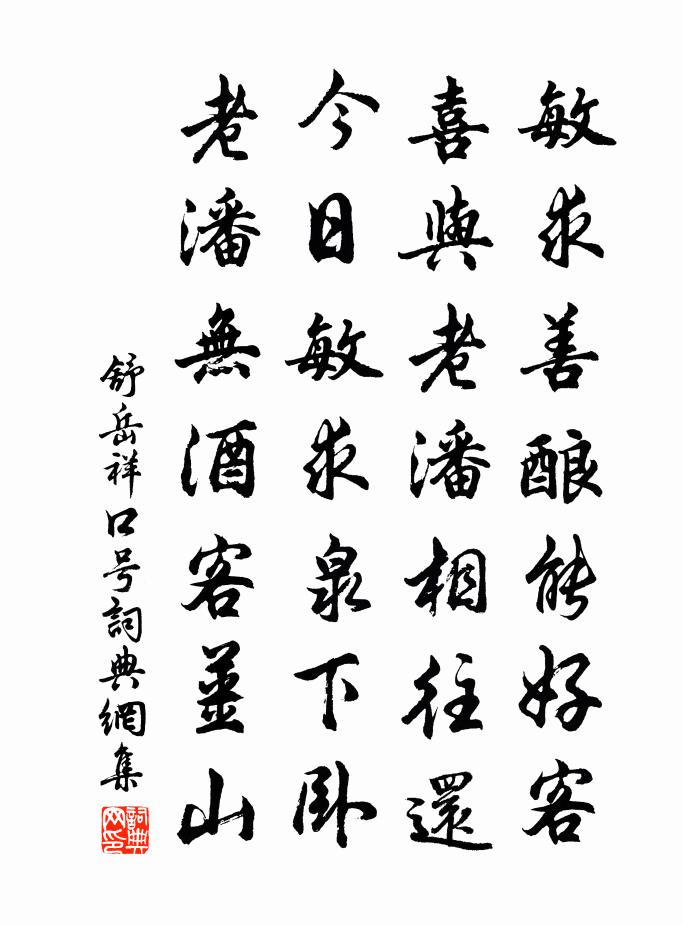 敏求善酿能好客
喜與老潘相往還
今日敏求泉下卧
老潘無酒客薑山
舒岳祥口号詞典網集
詞典網印